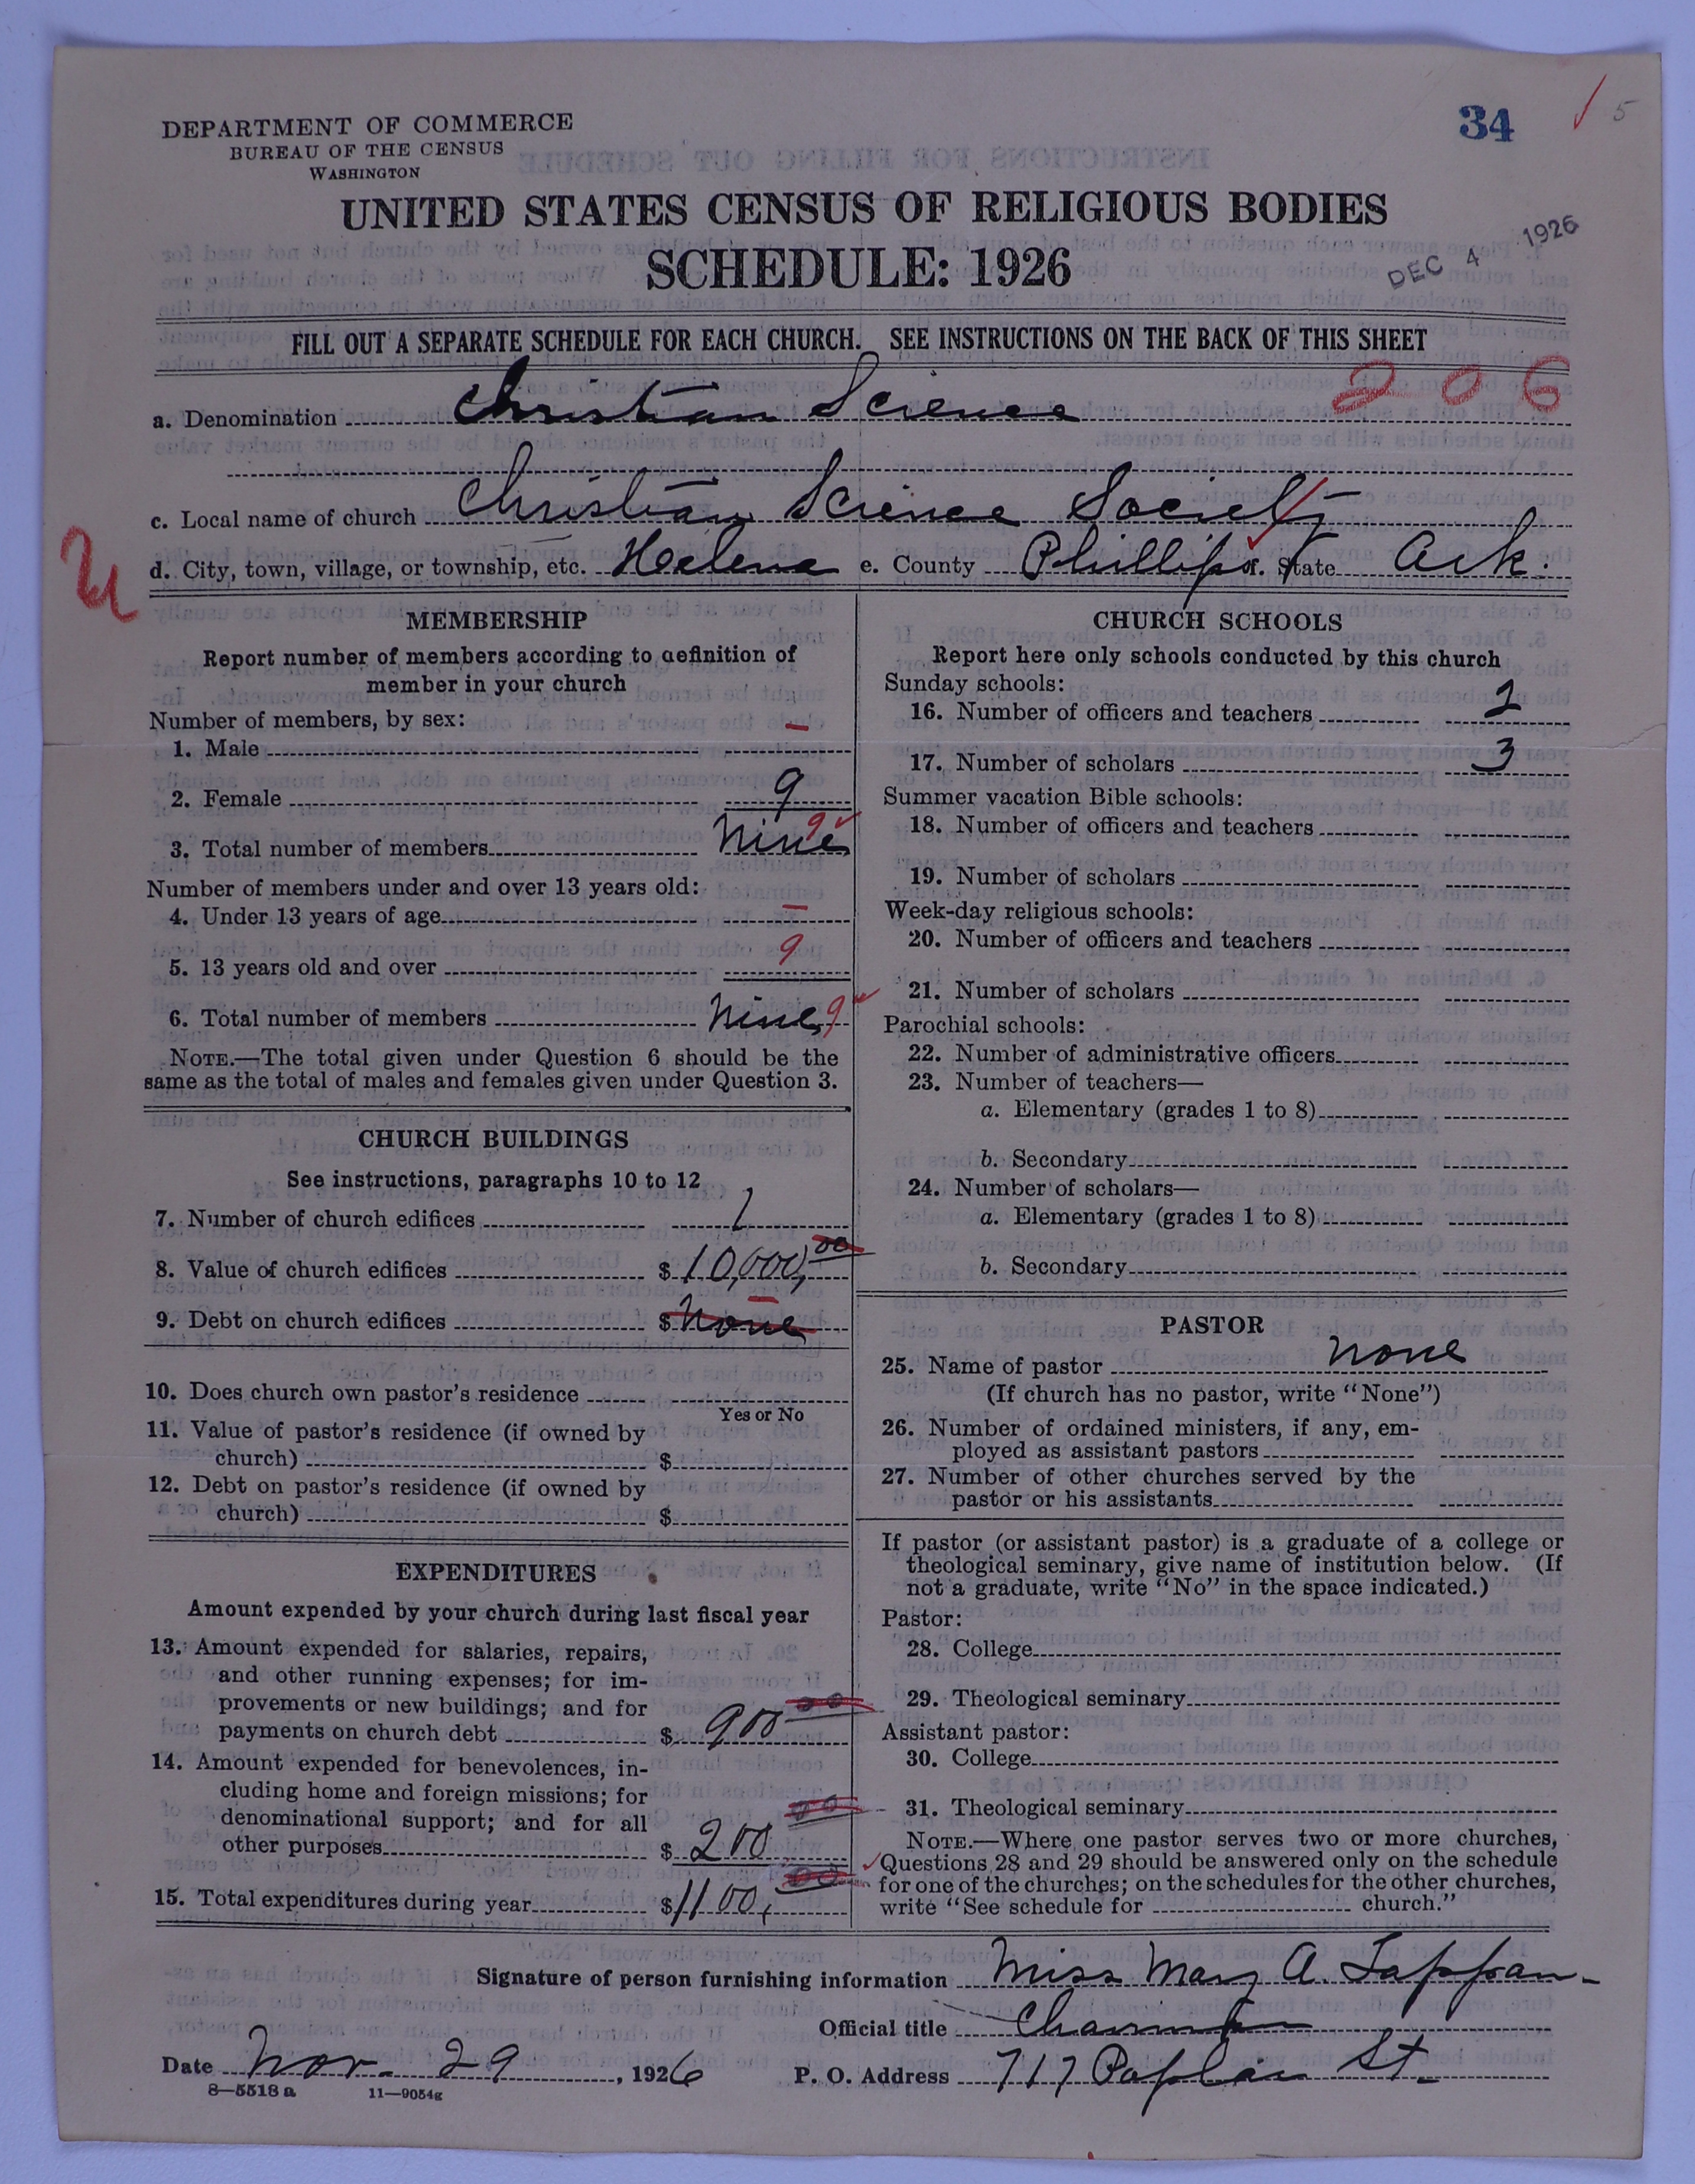 34
5
DEPARTMENT OF COMMERCE
BUREAU OF THE CENSUS
WASHINGTON
UNITED STATES CENSUS OF RELIGIOUS BODIES
SCHEDULE: 1926
DEC 4 1926
FILL OUT A SEPARATE SCHEDULE FOR EACH CHURCH. SEE INSTRUCTIONS ON THE BACK OF THIS SHEET
206
a. Denomination Christian Science
c. Local name of church Christian Science Society
d. City, town, village, or township, etc. Helena e. County Phillips f. State Ark.
MEMBERSHIP
Report number of members according to definition of
member in your church
Number of members, by sex:
1. Male –
2. Female 9
3. Total number of members Nine 9
Number of members under and over 13 years old:
4. Under 13 years of age –
5. 13 years old and over 9
6. Total number of members Nine 9
NOTE.—The total given under Question 6 should be the
same as the total of males and females given under Question 3.
CHURCH BUILDINGS
See instructions, paragraphs 10 to 12
7. Number of church edifices 1
8. Value of church edifices $ 10,000,00
9. Debt on church edifices $ None
10. Does church own pastor's residence
Yes or No
11. Value of pastor's residence (if owned by
church) $
12. Debt on pastor's residence (if owned by
church) $
EXPENDITURES
Amount expended by your church during last fiscal year
13. Amount expended for salaries, repairs,
and other running expenses; for im-
provements or new buildings; and for
payments on church debt $ 900 00
14. Amount expended for benevolences, in-
cluding home and foreign missions; for
denominational support; and for all
other purposes $ 200 00
15. Total expenditures during year $ 1100, 00
CHURCH SCHOOLS
Report here only schools conducted by this church
Sunday schools:
16. Number of officers and teachers 2
17. Number of scholars 3
Summer vacation Bible schools:
18. Number of officers and teachers
19. Number of scholars
Week-day religious schools:
20. Number of officers and teachers
21. Number of scholars
Parochial schools:
22. Number of administrative officers
23. Number of teachers—
a. Elementary (grades 1 to 8)
b. Secondary
24. Number of scholars—
a. Elementary (grades 1 to 8)
b. Secondary
PASTOR
25. Name of pastor None
(If church has no pastor, write "None")
26. Number of ordained ministers, if any, em-
ployed as assistant pastors
27. Number of other churches served by the
pastor or his assistants
If pastor (or assistant pastor) is a graduate of a college or
theological seminary, give name of institution below. (If
not a graduate, write "No" in the space indicated.)
Pastor:
28. College
29. Theological seminary
Assistant pastor:
30. College
31. Theological seminary
NOTE.—Where one pastor serves two or more churches,
Questions 28 and 29 should be answered only on the schedule
for one of the churches; on the schedules for the other churches,
write "See schedule for church."
Signature of person furnishing information Miss Mary A. Tappan
Official title Chairman
Date Nov. 29, 1926 P. O. Address 717 Poplar St.
8—5518 a 11—9054g